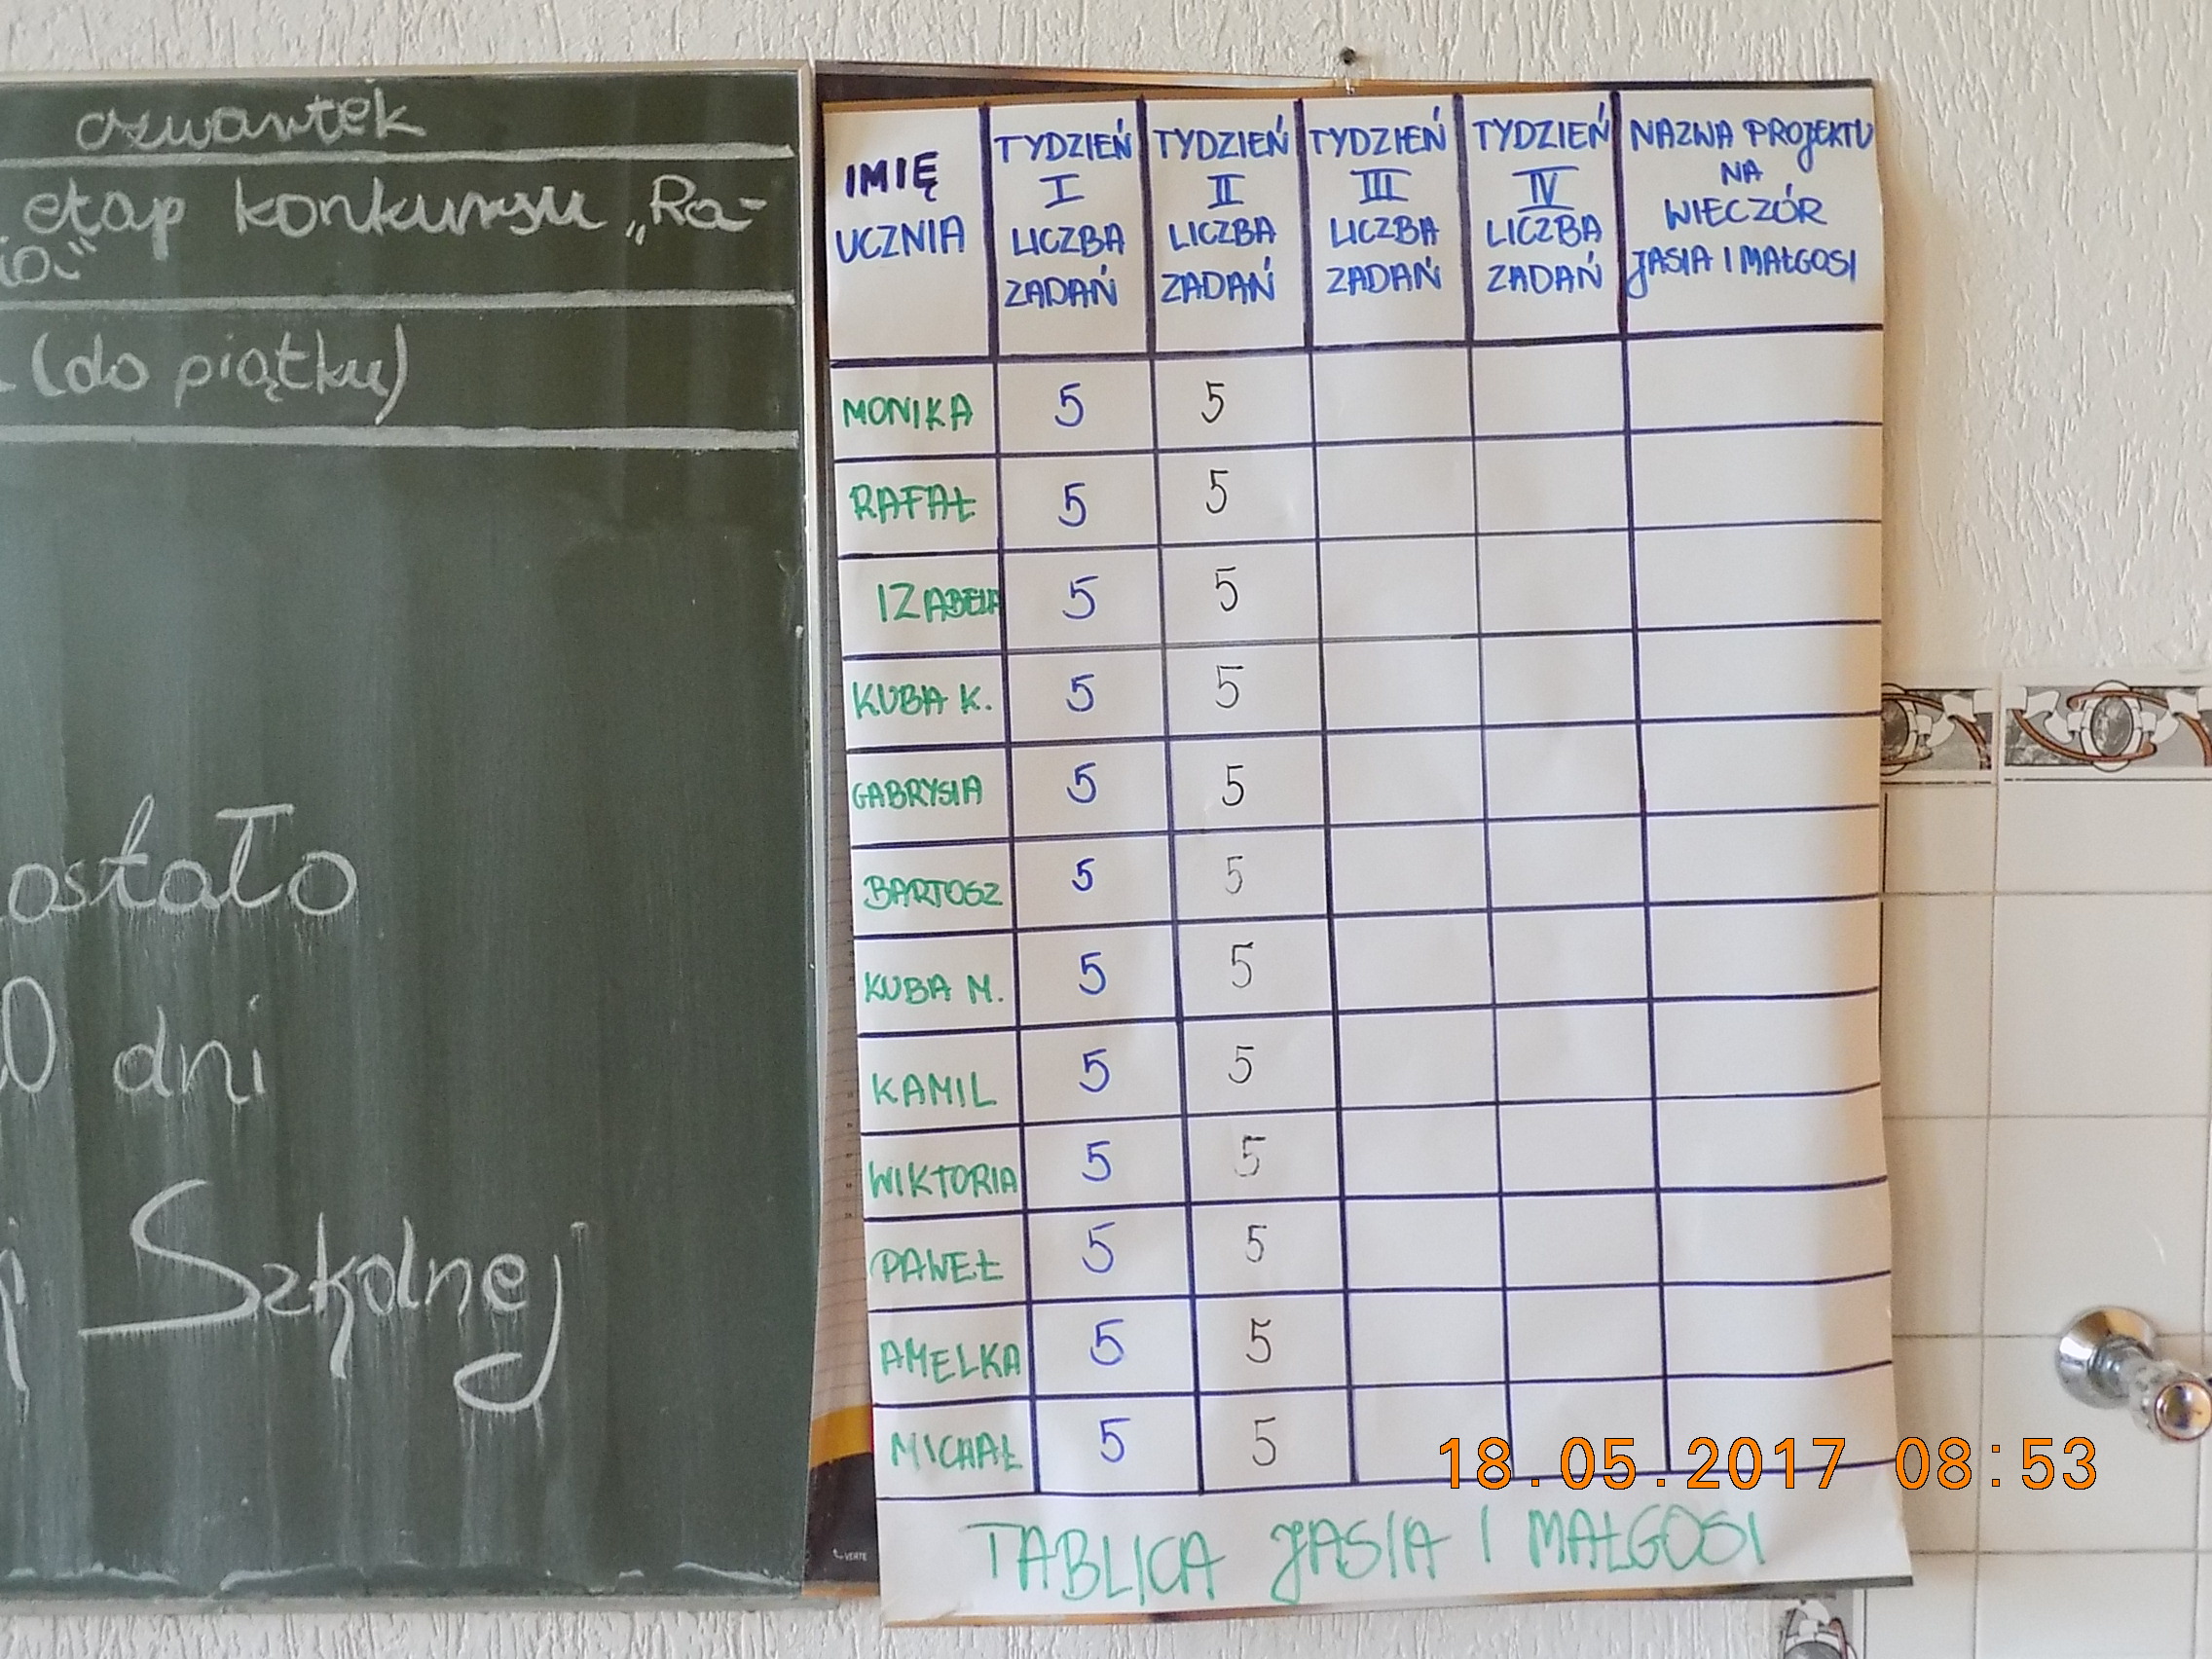 czwartek
etap konkursu „Ra-
(do piątku)
dni
Szkolnej
IMIĘ
UCZNIA
TYDZIEŃ
I
LICZBA
ZADAŃ
TYDZIEŃ
II
LICZBA
ZADAŃ
TYDZIEŃ
III
LICZBA
ZADAŃ
TYDZIEŃ
IV
LICZBA
ZADAŃ
NAZWA PROJEKTU
NA
WIECZÓR
JASIA I MAŁGOSI
MONIKA 5 5
RAFAŁ 5 5
IZABELA 5 5
KUBA K. 5 5
GABRYSIA 5 5
BARTOSZ 5 5
KUBA M. 5 5
KAMIL 5 5
WIKTORIA 5 5
PAWEŁ 5 5
AMELKA 5 5
MICHAŁ 5 5
TABLICA JASIA I MAŁGOSI
VERTE
18.05.2017 08:53